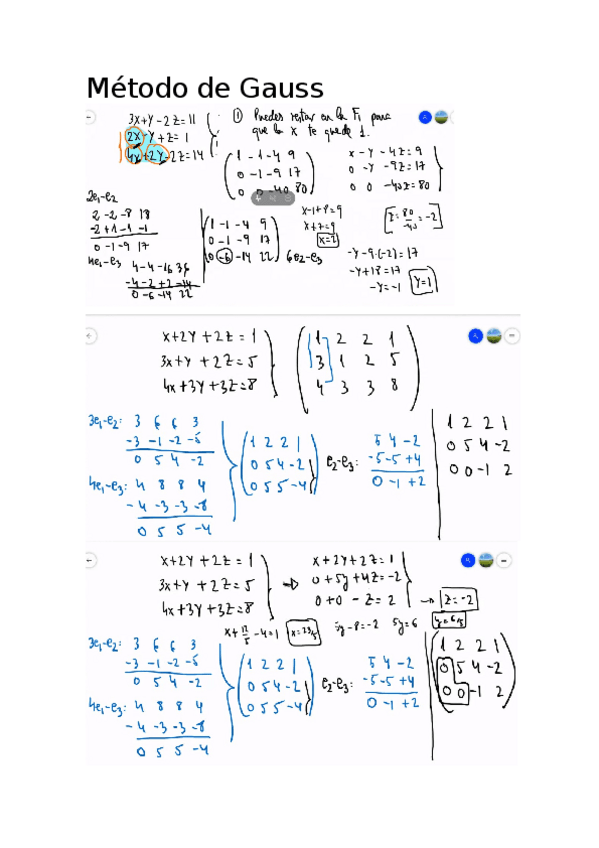 Método de Gauss
3x+y-2z=11
2x-y+z=1
4x+2y-2z=14
① Puedes restar en la F₁ para
que la x te quede 1.
1 -1 -4 9
0 -1 -9 17
0 0 -40 80
x-y-4z=9
0 -y -9z=17
0 0 -40z=80
2e₁-e₂
2 -2 -8 18
-2 +1 -1 -1
0 -1 -9 17
4e₁-e₃
4 -4 -16 36
-4 -2 +2 -14
0 -6 -14 22
1 -1 -4 9
0 -1 -9 17
0 -6 -14 22
6e₂-e₃
x-1+8=9
x+7=9
x=2
z=80/-40=-2
-y-9·(-2)=17
-y+18=17
-y=-1
y=1
x+2y+2z=1
3x+y+2z=5
4x+3y+3z=8
1 2 2 1
3 1 2 5
4 3 3 8
3e₁-e₂: 3 6 6 3
-3 -1 -2 -5
0 5 4 -2
4e₁-e₃: 4 8 8 4
-4 -3 -3 -8
0 5 5 -4
1 2 2 1
0 5 4 -2
0 5 5 -4
e₂-e₃:
5 4 -2
-5 -5 +4
0 -1 +2
1 2 2 1
0 5 4 -2
0 0 -1 2
x+2y+2z=1
3x+y+2z=5
4x+3y+3z=8
x+2y+2z=1
0+5y+4z=-2
0+0-z=2
→ z=-2
y=6/5
5y-8=-2 5y=6
x+12/5-4=1 x=23/5
3e₁-e₂: 3 6 6 3
-3 -1 -2 -5
0 5 4 -2
4e₁-e₃: 4 8 8 4
-4 -3 -3 -8
0 5 5 -4
1 2 2 1
0 5 4 -2
0 5 5 -4
e₂-e₃:
5 4 -2
-5 -5 +4
0 -1 +2
1 2 2 1
0 5 4 -2
0 0 -1 2